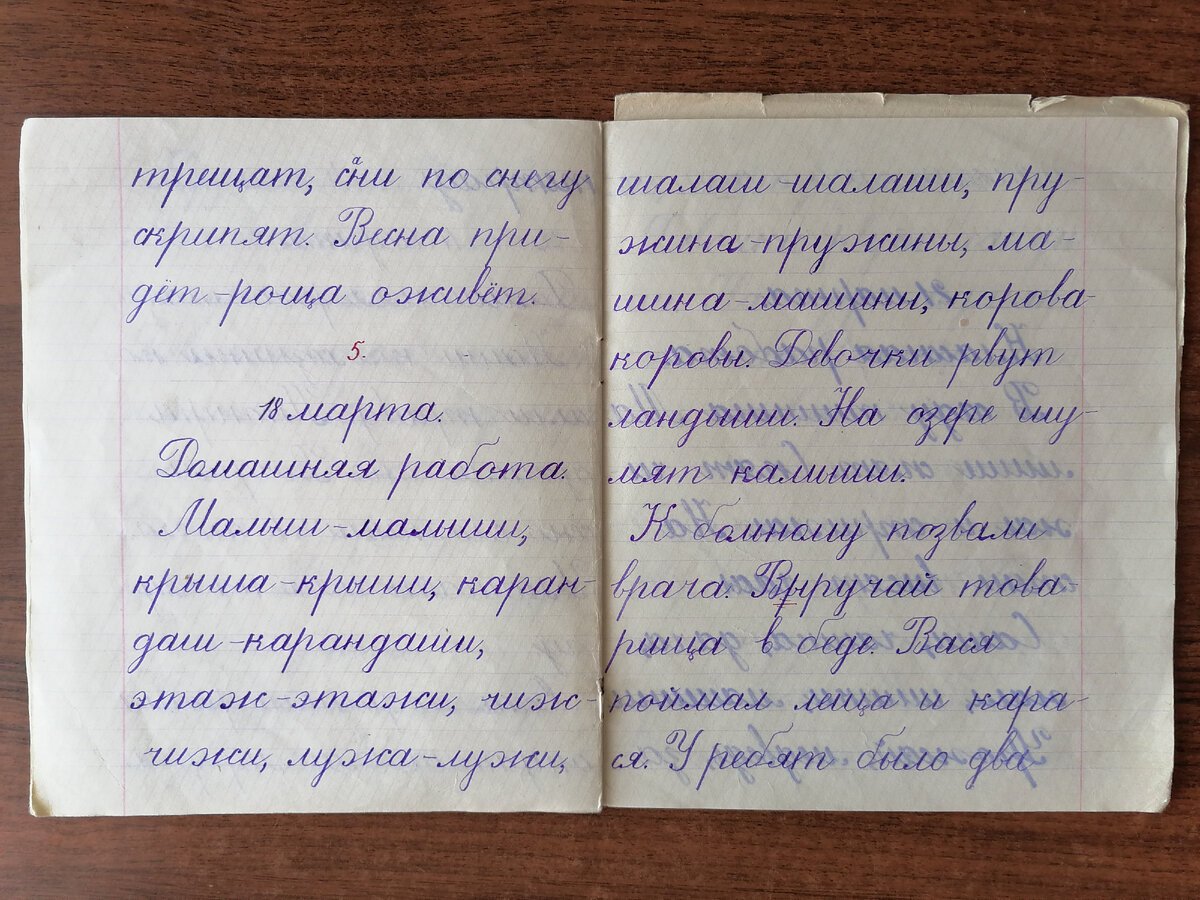 трещат, сани по снегу
скрипят. Весна при-
дёт-роща оживёт.
5.
18 марта.
Домашняя работа.
Малыш-малыши,
крыша-крыши, каран-
даш-карандаши,
этаж-этажи, чиж-
чижи, лужа-лужи,
шалаш-шалаши, пру-
жина-пружины, ма-
шина-машины, корова-
коровы. Девочки рвут
ландыши. На озере шу-
мят камыши.
К больному позвали
врача. Выручай това-
рища в беде. Вася
поймал леща и кара-
ся. У ребят было два